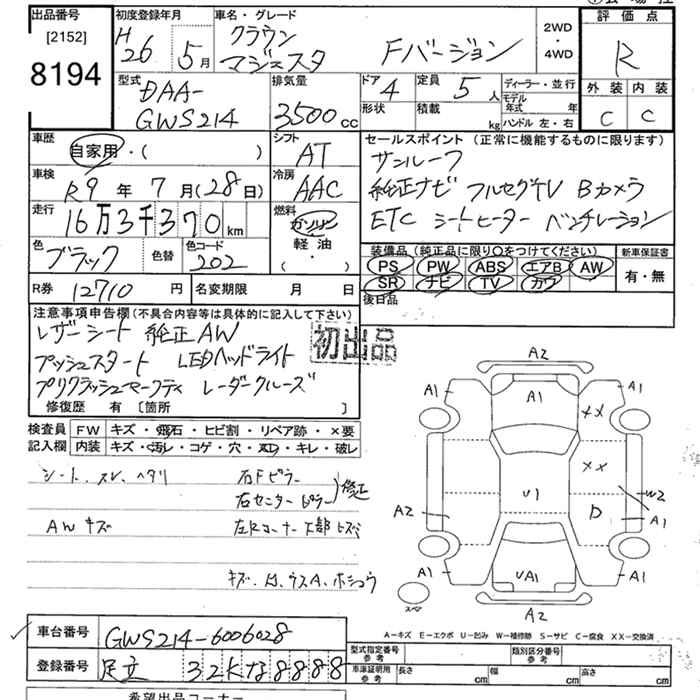 出品番号
[2152]
8194
初度登録年月
H26 5月
車名・グレード
クラウン
マジェスタ Fバージョン
2WD
・
4WD
評価点
R
外装 内装
C C
型式
DAA-
GWS214
排気量
3500cc
ドア 4
形状
定員 5人
積載 kg
ディーラー・並行
モデル年式 年
ハンドル 左・右
車歴
自家用・( )
車検
R9年7月(28日)
走行
16万3千370km
色
ブラック
色替
色コード
202
シフト
AT
冷房
AAC
燃料
ガソリン
軽油・
( )
セールスポイント(正常に機能するものに限ります)
サンルーフ
純正ナビ フルセグTV Bカメラ
ETC シートヒーター ベンチレーション
装備品(純正品に限り○をつけてください)
PS PW ABS エアB AW
SR ナビ TV カワ
新車保証書
有・無
後日品
R券 12710円
名変期限 月 日
注意事項申告欄(不具合内容等は具体的に記入して下さい)
レザーシート 純正AW
プッシュスタート LEDヘッドライト
プリクラッシュセーフティ レーダークルーズ
修復歴 有 [箇所 ]
初出品
検査員 FW キズ・飛石・ヒビ割・リペア跡・×要
記入欄 内装 キズ・汚レ・コゲ・穴・凹・キレ・破レ
シート スレ、ヘタリ
右Fピラー
右センターピラー 修正
AWキズ
左Rコーナー下部
キズ、凹、ウスA、ホショウ
A2
A1 A1 A1
XX
XX
U1
W2
A2 D A1
A1 UA1 A1
スペア
A2
A-キズ E-エクボ U-凹み W-補修跡 S-サビ C-腐食 XX-交換済
車台番号 GWS214-6006028
登録番号 足立 32K な 8888
型式指定番号 参考
類別区分番号 参考
車庫証明用 参考 長さ cm 幅 cm 高さ cm
希望出品コーナー